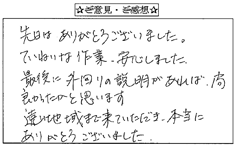 ☆ご意見・ご感想☆
先日は ありがとうございました。
ていねいな作業、安心しました。
最後に 外回りの説明があれば、尚
良かったかと思います
遠い地域まで来ていただき、本当に
ありがとうございました。